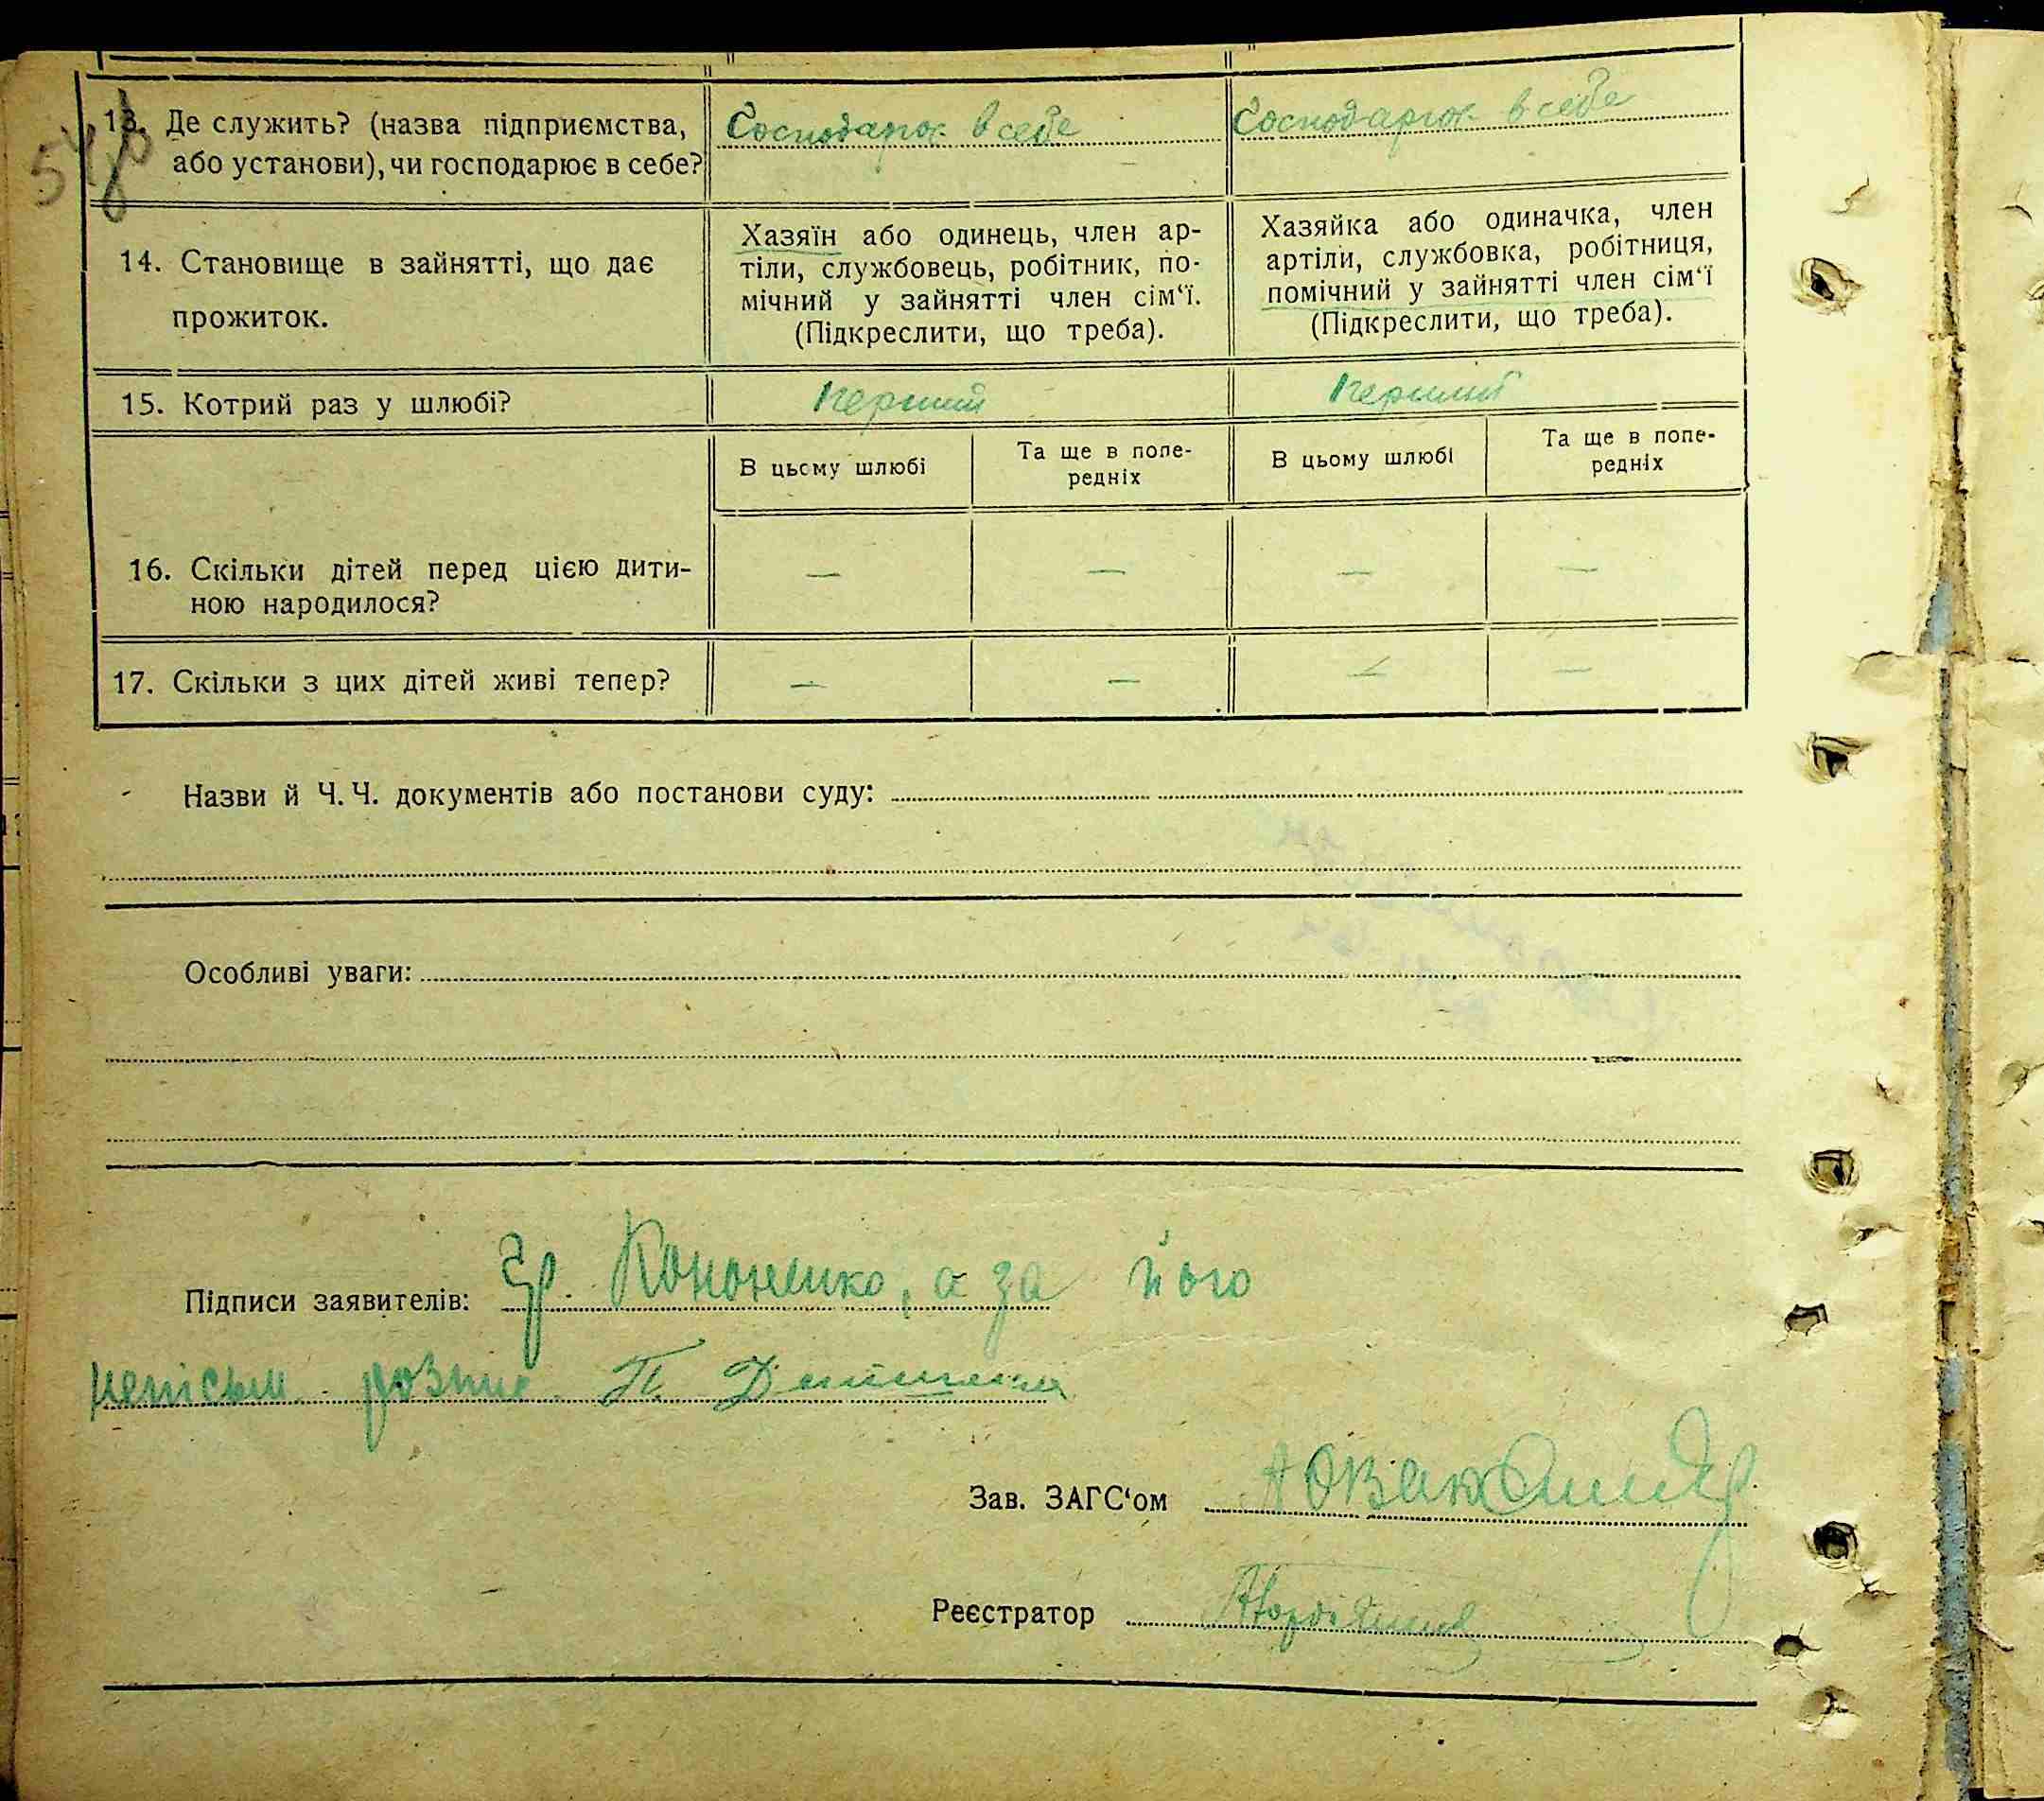 13. Де служить? (назва підприємства, або установи), чи господарює в себе?
Господарює в себе
Господарює в себе
14. Становище в зайнятті, що дає прожиток.
Хазяїн або одинець, член ар-
тіли, службовець, робітник, по-
мічний у зайнятті член сім'ї.
(Підкреслити, що треба).
Хазяйка або одиначка, член
артіли, службовка, робітниця,
помічний у зайнятті член сім'ї
(Підкреслити, що треба).
15. Котрий раз у шлюбі?
Перший
Перший
В цьому шлюбі
Та ще в попе-
редніх
В цьому шлюбі
Та ще в попе-
редніх
16. Скільки дітей перед цією дити-
ною народилося?
— — — —
17. Скільки з цих дітей живі тепер?
— — — —
Назви й Ч. Ч. документів або постанови суду:
Особливі уваги:
Підписи заявителів: Гр. Кононенко, а за його
розпис. П.
Зав. ЗАГС'ом
Реєстратор